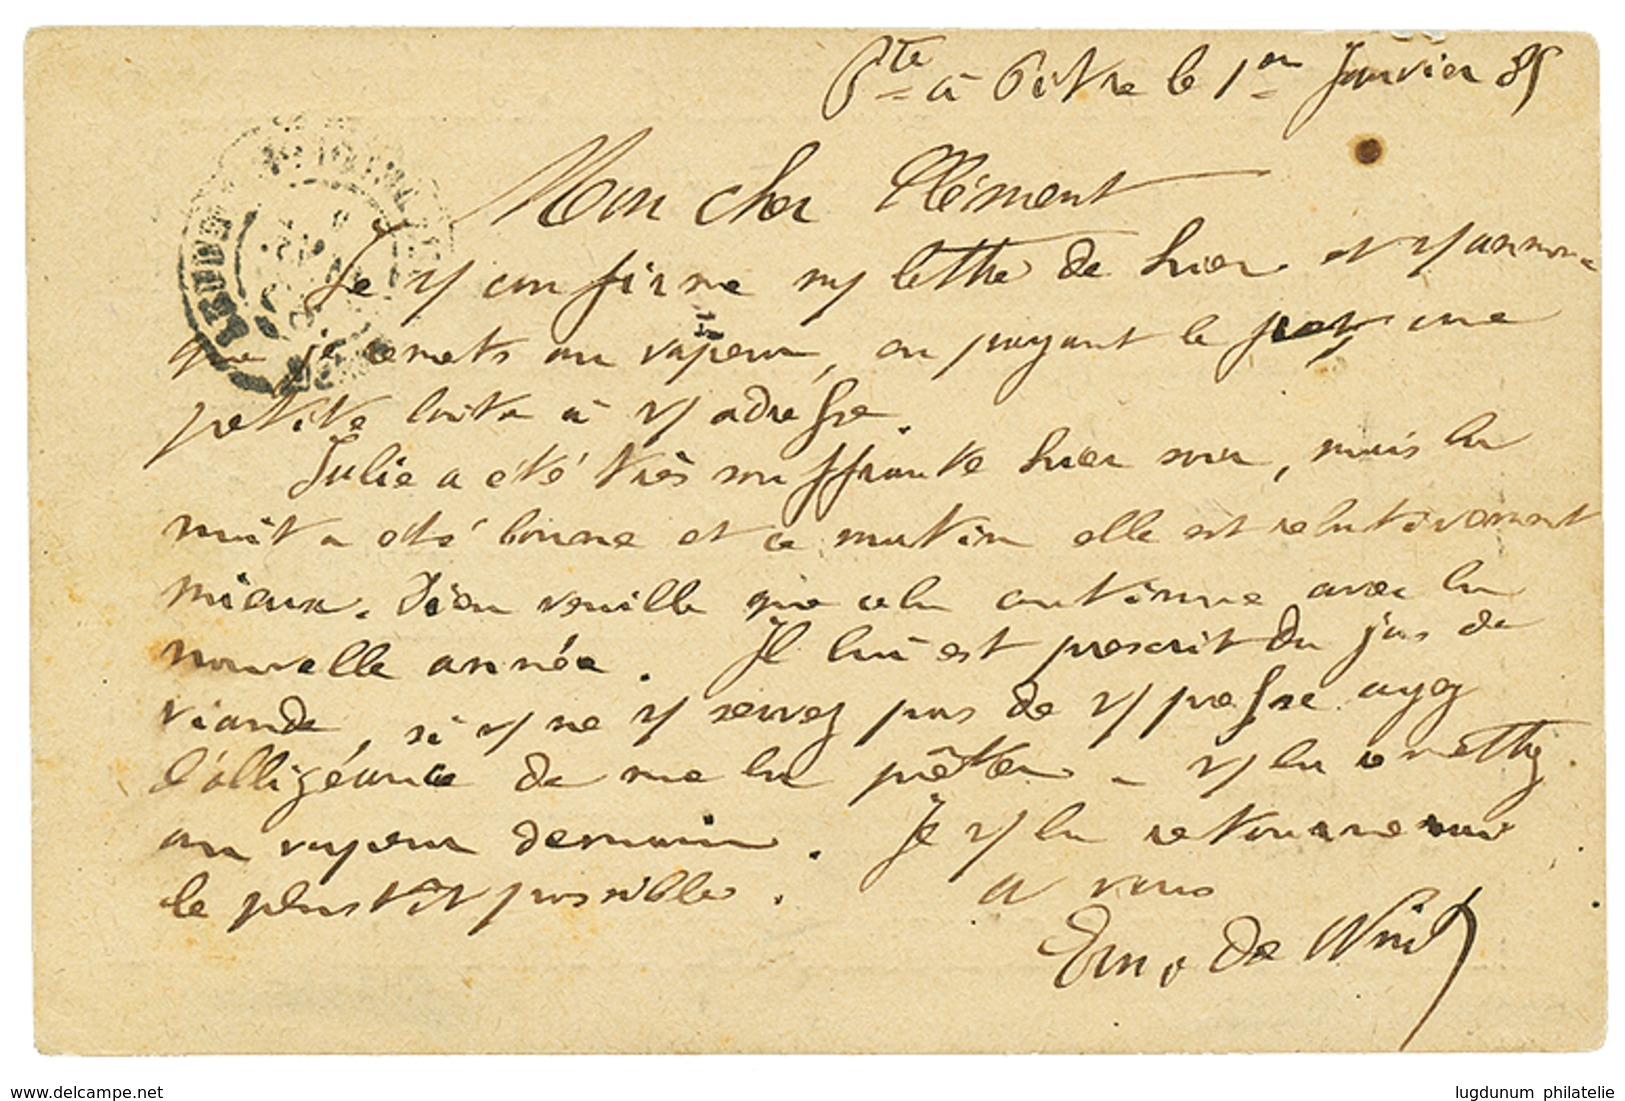 Pte à Pitre le 1er Janvier 85
Mon cher Clément
Je v/ confirme my lettre de hier et v/ annonce
que je remets au vapeur, en payant le port, une
petite boite à v/ adresse.
Julie a été très souffrante hier soir, mais la
nuit a été bonne et ce matin elle est relativement
mieux. Dieu veuille que cela continue avec la
nouvelle année. Il lui est prescrit du jus de
viande, si v/ ne v/ servez pas de v/ presse ayez
l'obligéance de me la prêter - v/ la remettrez
au vapeur demain. Je v/ la retournerai
le plus tôt possible. a vous
de
delcampe.net
lugdunum philatelie